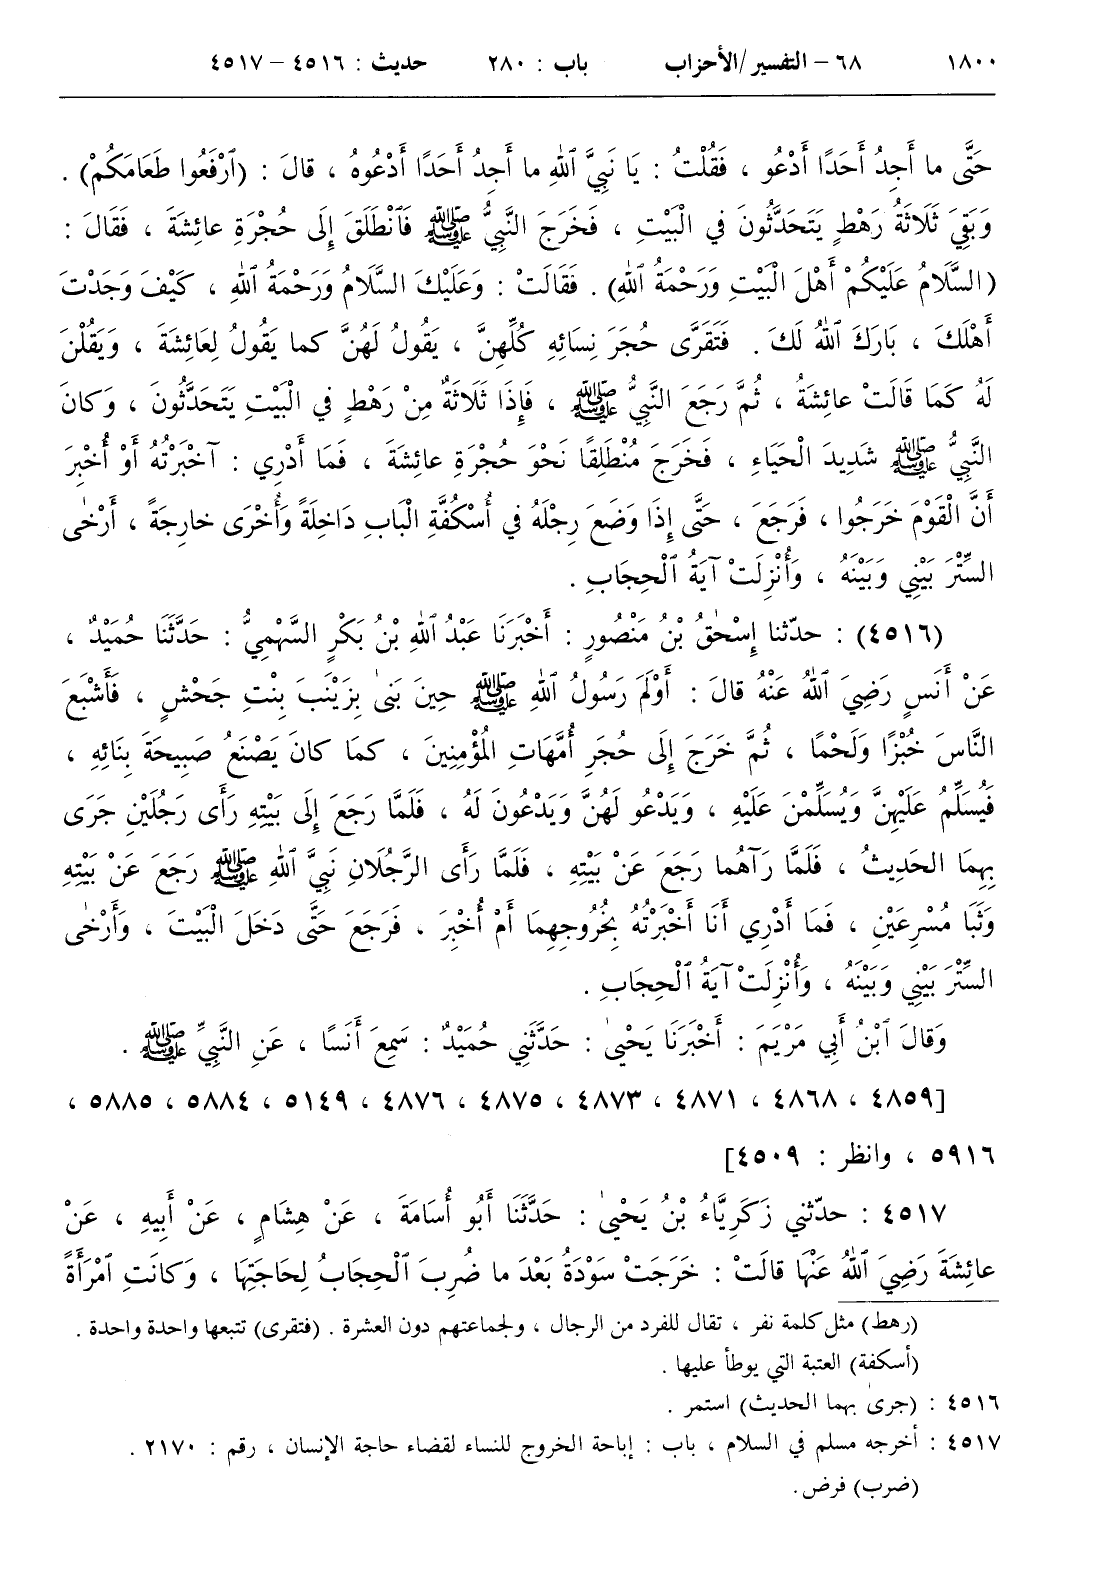 ١٨٠٠ ٦٨ – التفسير/الأحزاب باب : ٢٨٠ حديث : ٤٥١٦ – ٤٥١٧
حَتَّى ما أَجِدُ أَحَدًا أَدْعُو ، فَقُلْتُ : يَا نَبِيَّ ٱللهِ ما أَجِدُ أَحَدًا أَدْعُوهُ ، قالَ : (ٱرْفَعُوا طَعَامَكُمْ) .
وَبَقِيَ ثَلَاثَةُ رَهْطٍ يَتَحَدَّثُونَ في الْبَيْتِ ، فَخَرَجَ النَّبِيُّ ﷺ فَٱنْطَلَقَ إِلَى حُجْرَةِ عائِشَةَ ، فَقَالَ :
(السَّلَامُ عَلَيْكُمْ أَهْلَ الْبَيْتِ وَرَحْمَةُ ٱللهِ) . فَقَالَتْ : وَعَلَيْكَ السَّلَامُ وَرَحْمَةُ ٱللهِ ، كَيْفَ وَجَدْتَ
أَهْلَكَ ، بَارَكَ ٱللهُ لَكَ . فَتَقَرَّى حُجَرَ نِسَائِهِ كُلِّهِنَّ ، يَقُولُ لَهُنَّ كما يَقُولُ لِعَائِشَةَ ، وَيَقُلْنَ
لَهُ كَمَا قَالَتْ عائِشَةُ ، ثُمَّ رَجَعَ النَّبِيُّ ﷺ ، فَإِذَا ثَلَاثَةٌ مِنْ رَهْطٍ في الْبَيْتِ يَتَحَدَّثُونَ ، وَكانَ
النَّبِيُّ ﷺ شَدِيدَ الْحَيَاءِ ، فَخَرَجَ مُنْطَلِقًا نَحْوَ حُجْرَةِ عائِشَةَ ، فَمَا أَدْرِي : آخْبَرْتُهُ أَوْ أُخْبِرَ
أَنَّ الْقَوْمَ خَرَجُوا ، فَرَجَعَ ، حَتَّى إِذَا وَضَعَ رِجْلَهُ في أُسْكُفَّةِ الْبَابِ دَاخِلَةً وَأُخْرَى خارِجَةً ، أَرْخٰى
السِّتْرَ بَيْنِي وَبَيْنَهُ ، وَأُنْزِلَتْ آيَةُ ٱلْحِجَابِ .
(٤٥١٦) : حدّثنا إِسْحٰقُ بْنُ مَنْصُورٍ : أَخْبَرَنَا عَبْدُ ٱللهِ بْنُ بَكْرٍ السَّهْمِيُّ : حَدَّثَنَا حُمَيْدٌ ،
عَنْ أَنَسٍ رَضِيَ ٱللهُ عَنْهُ قالَ : أَوْلَمَ رَسُولُ ٱللهِ ﷺ حِينَ بَنىٰ بِزَيْنَبَ بِنْتِ جَحْشٍ ، فَأَشْبَعَ
النَّاسَ خُبْزًا وَلَحْمًا ، ثُمَّ خَرَجَ إِلَى حُجَرِ أُمَّهَاتِ الْمُؤْمِنِينَ ، كمَا كانَ يَصْنَعُ صَبِيحَةَ بِنَائِهِ ،
فَيُسَلِّمُ عَلَيْهِنَّ وَيُسَلِّمْنَ عَلَيْهِ ، وَيَدْعُو لَهُنَّ وَيَدْعُونَ لَهُ ، فَلَمَّا رَجَعَ إِلَى بَيْتِهِ رَأَى رَجُلَيْنِ جَرَى
بِهِمَا الحَدِيثُ ، فَلَمَّا رَآهُما رَجَعَ عَنْ بَيْتِهِ ، فَلَمَّا رَأَى الرَّجُلَانِ نَبِيَّ ٱللهِ ﷺ رَجَعَ عَنْ بَيْتِهِ
وَثَبَا مُسْرِعَيْنِ ، فَمَا أَدْرِي أَنَا أَخْبَرْتُهُ بِخُرُوجِهِمَا أَمْ أُخْبِرَ ، فَرَجَعَ حَتَّى دَخَلَ الْبَيْتَ ، وَأَرْخٰى
السِّتْرَ بَيْنِي وَبَيْنَهُ ، وَأُنْزِلَتْ آيَةُ ٱلْحِجَابِ .
وَقالَ ٱبْنُ أَبِي مَرْيَمَ : أَخْبَرَنَا يَحْيىٰ : حَدَّثَنِي حُمَيْدٌ : سَمِعَ أَنَسًا ، عَنِ النَّبِيِّ ﷺ .
[٤٨٥٩ ، ٤٨٦٨ ، ٤٨٧١ ، ٤٨٧٣ ، ٤٨٧٥ ، ٤٨٧٦ ، ٥١٤٩ ، ٥٨٨٤ ، ٥٨٨٥ ،
٥٩١٦ ، وانظر : ٤٥٠٩]
٤٥١٧ : حدّثني زَكَرِيَّاءُ بْنُ يَحْيىٰ : حَدَّثَنَا أَبُو أُسَامَةَ ، عَنْ هِشَامٍ ، عَنْ أَبِيهِ ، عَنْ
عائِشَةَ رَضِيَ ٱللهُ عَنْهَا قالَتْ : خَرَجَتْ سَوْدَةُ بَعْدَ ما ضُرِبَ ٱلْحِجَابُ لِحَاجَتِهَا ، وَكانَتِ ٱمْرَأَةً
(رهط) مثل كلمة نفر ، تقال للفرد من الرجال ، ولجماعتهم دون العشرة . (فتقرى) تتبعها واحدة واحدة .
(أسكفة) العتبة التي يوطأ عليها .
٤٥١٦ : (جرىٰ بهما الحديث) استمر .
٤٥١٧ : أخرجه مسلم في السلام ، باب : إباحة الخروج للنساء لقضاء حاجة الإنسان ، رقم : ٢١٧٠ .
(ضرب) فرض .